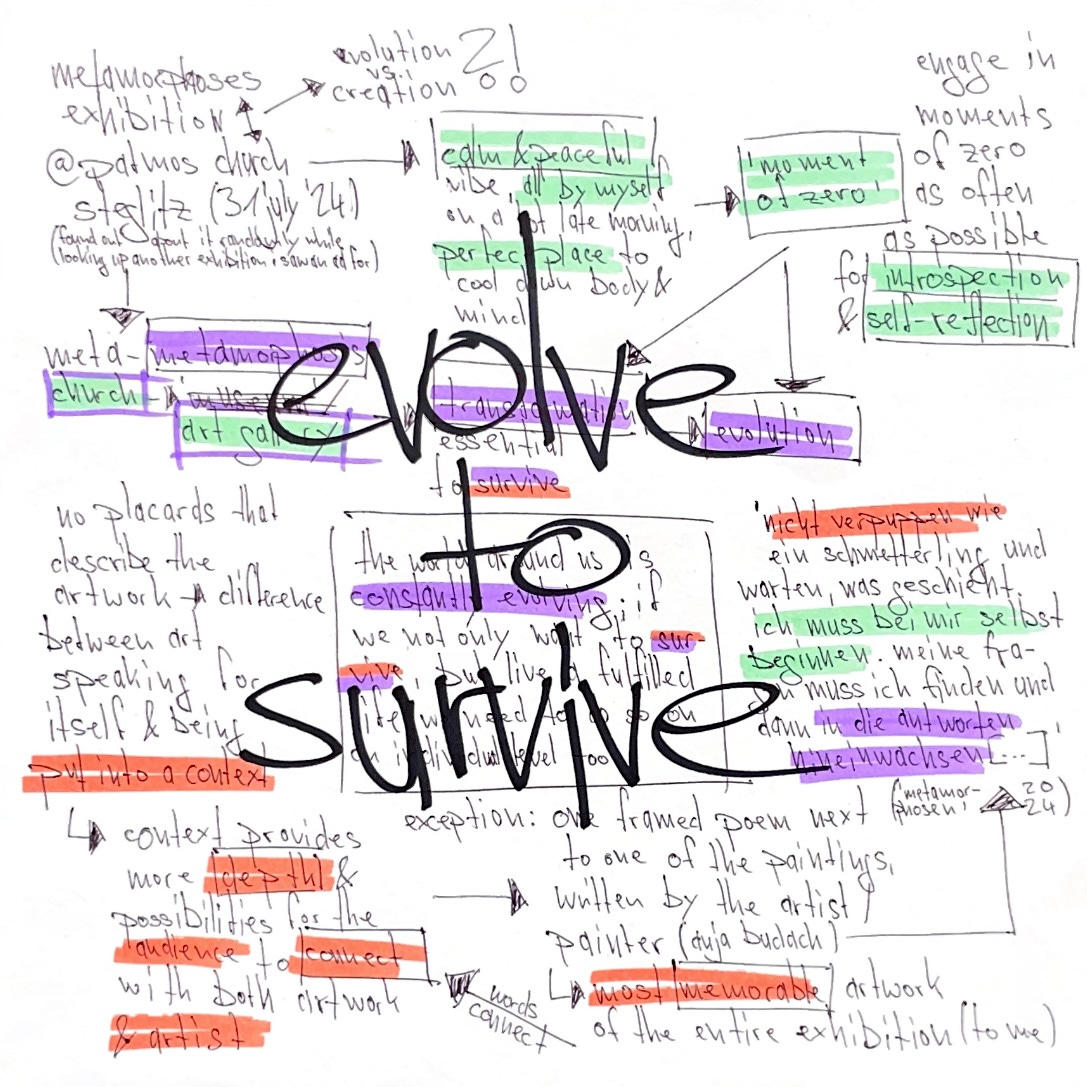 metamorphoses
exhibition
@patmos church
steglitz (31 july '24)
(found out about it randomly while
looking up another exhibition i saw an ad for)
evolution
vs.
creation ?!
calm & peaceful
vibe, all by myself
on a hot late morning,
perfect place to
cool down body &
mind
'moment
of zero'
engage in
moments
of zero
as often
as possible
for introspection
& self-reflection
meta- metamorphosis
church museum
art gallery
transformation
essential
to survive
evolution
evolve
to
survive
no placards that
describe the
artwork difference
between art
speaking for
itself & being
put into a context
the world around us is
constantly evolving; if
we not only want to sur-
vive, but live a fulfilled
life, we need to do so on
an individual level too
'nicht verpuppen wie
ein schmetterling und
warten, was geschieht.
ich muss bei mir selbst
beginnen. meine fra-
gen muss ich finden und
dann in die antworten
hineinwachsen [...]'
('metamor-
phosen', 2024)
context provides
more depth &
possibilities for the
audience to connect
with both artwork
& artist
exception: one framed poem next
to one of the paintings,
written by the artist /
painter (anja budach)
most memorable artwork
of the entire exhibition (to me)
words
connect